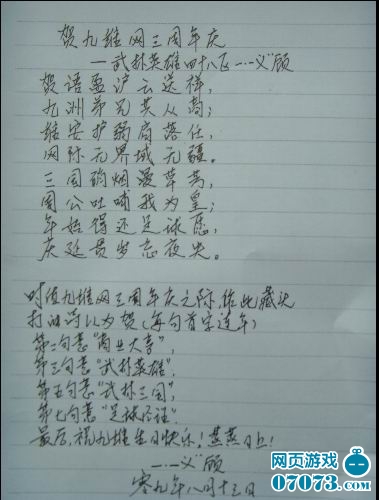 贺九维网三周年庆
—武林英雄四十八区一.一.义"顾
贺语盈沪云送祥,
九洲弟兄共从商;
维安护弱肩落任,
网际无界域无疆。
三国硝烟漫草莽,
周公吐哺我为皇;
年始得还足球愿,
庆延贵岁忘夜央。
时值九维网三周年庆之际,作此藏头
打油诗以为贺(每句首字连年)
第二句意"商业大亨",
第三句意"武林英雄",
第五句意"武林三国",
第七句意"足球经理".
最后,祝九维生日快乐!蒸蒸日上!
—.一.义"顾
零九年八月十三日
网页游戏
07073.com